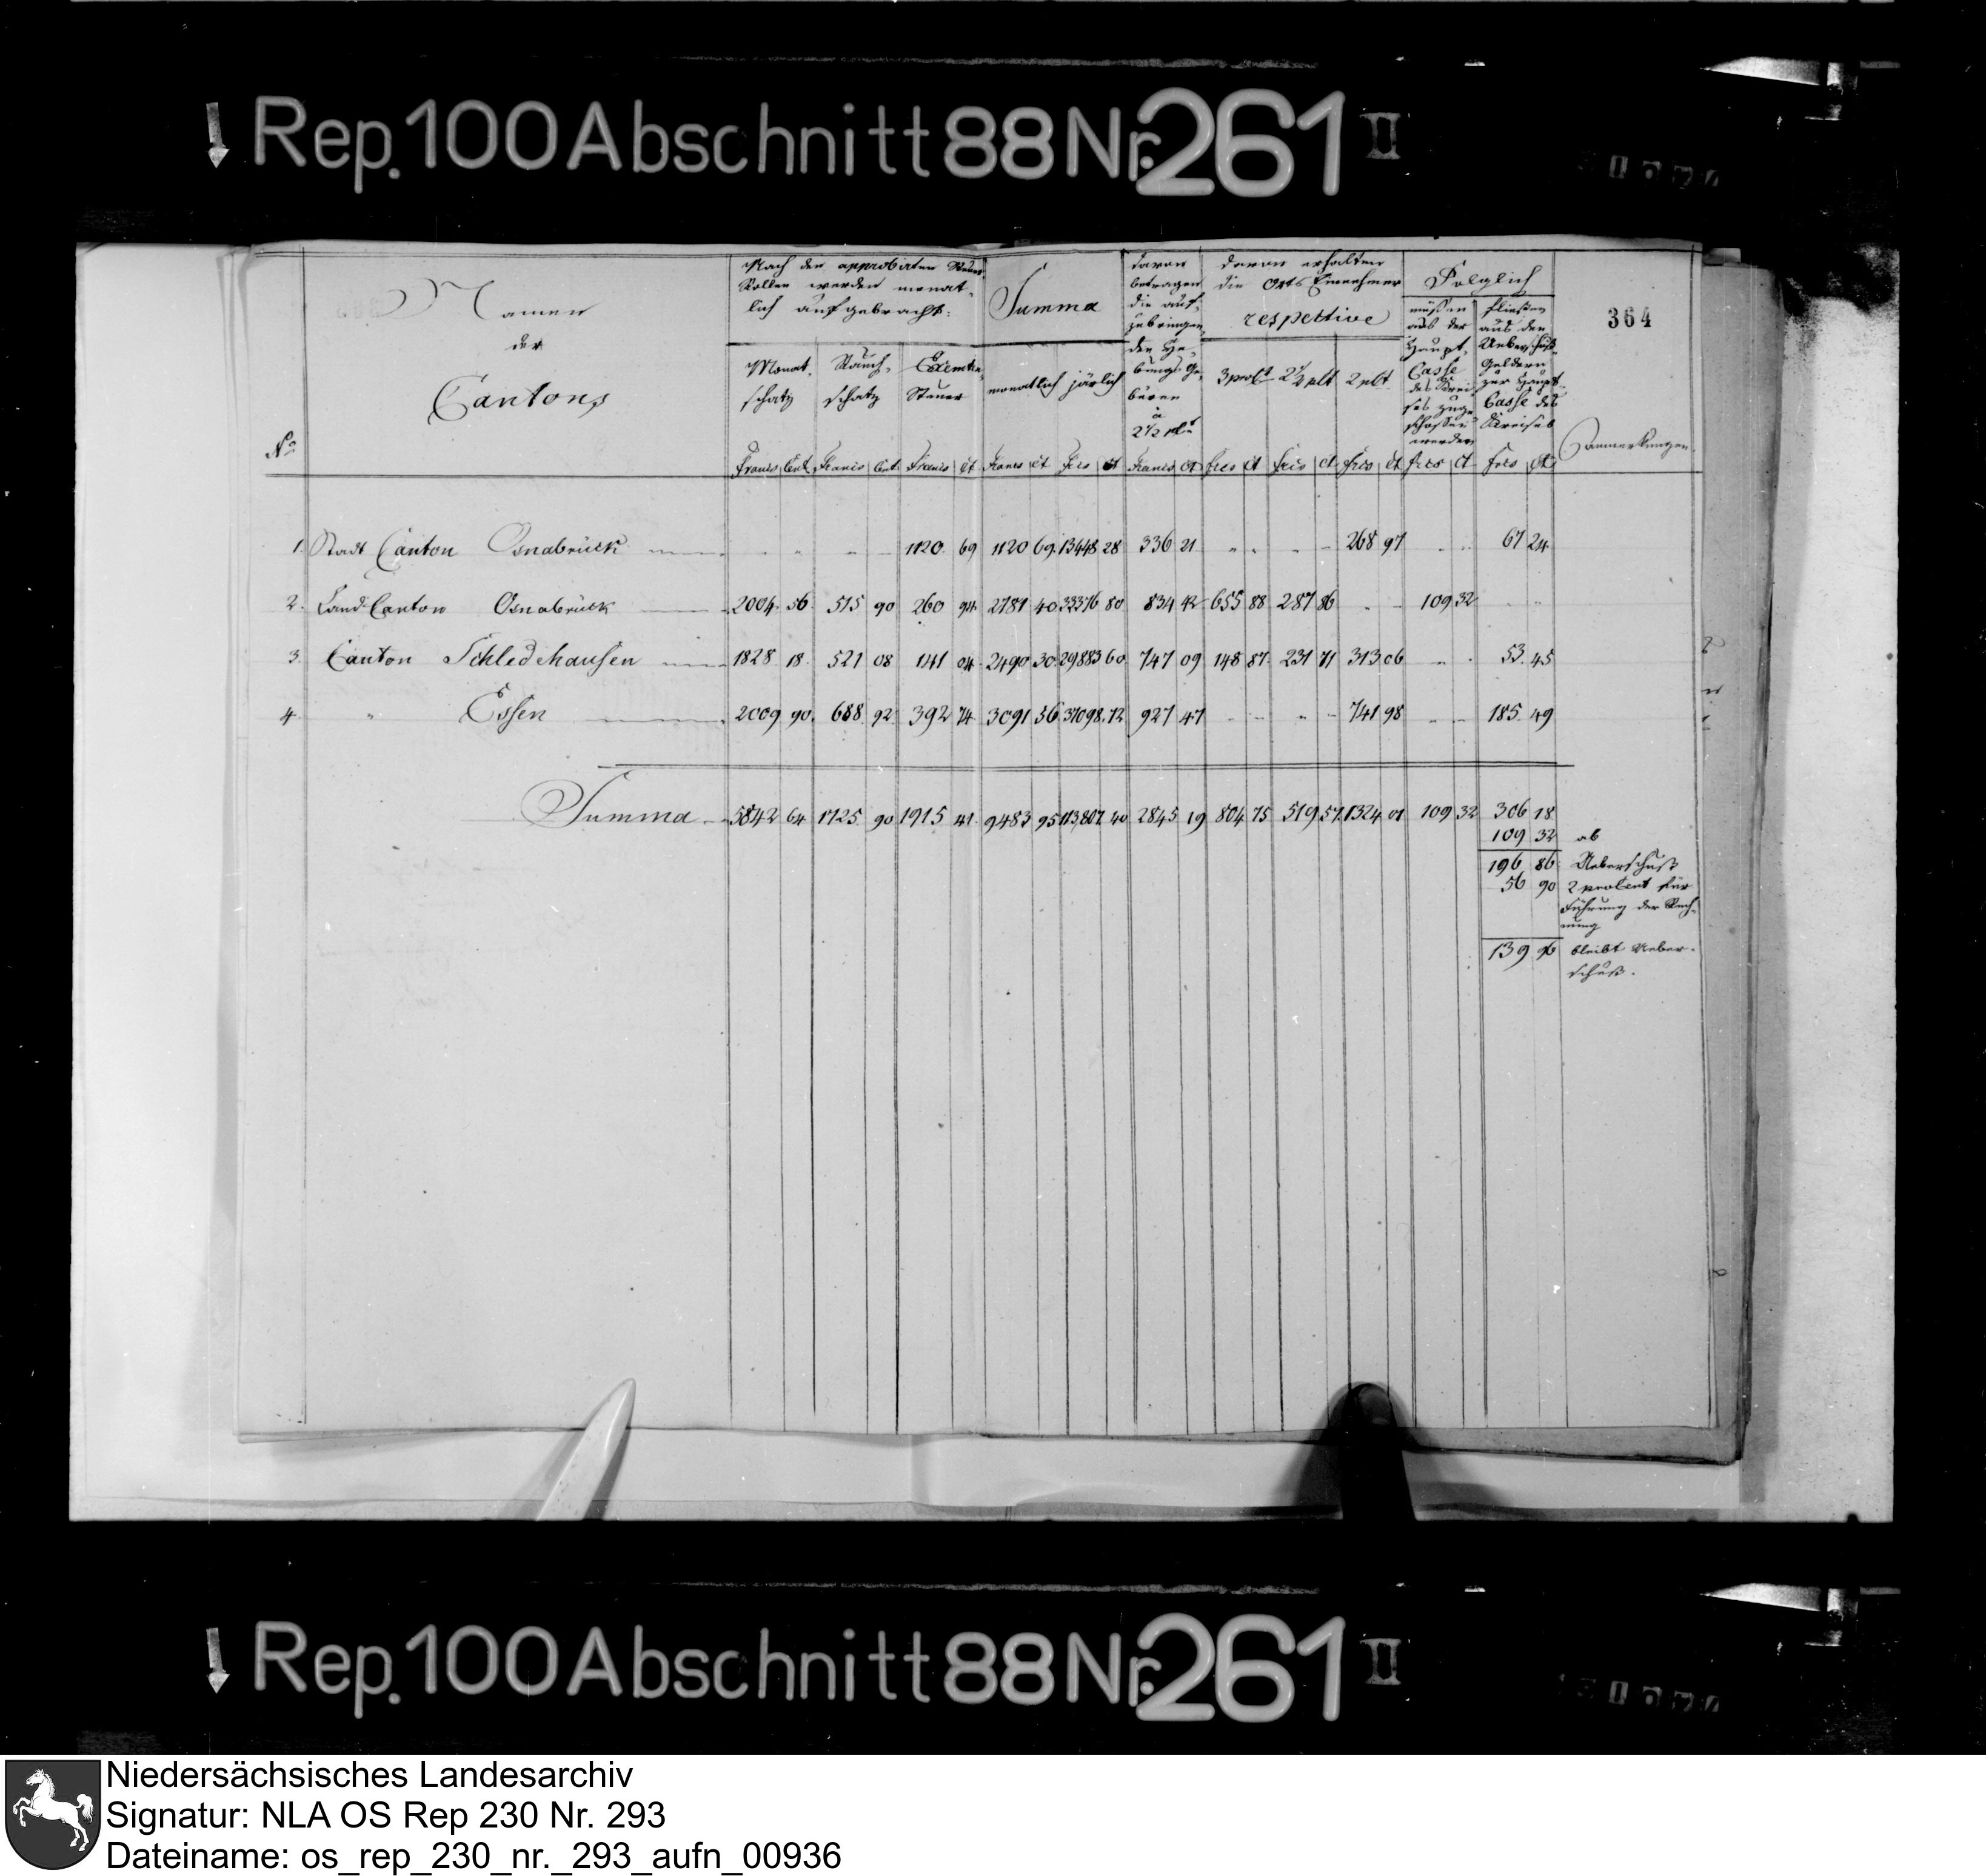 Rep. 100 Abschnitt 88 Nr. 261 II
364
No
Namen
der
Cantons
Nach den approbirten Steuer
Rollen werden monat-
lich aufgebracht:
Monat-
schatz
Rauch-
schatz
Exemten
Steuer
Summa
monatlich järlich
davon
betragen
die auf-
zubringen-
den He-
bungs Ge-
büren
à
2 1/2 pCt
davon erhalten
die Orts Einnehmer
respective
3 proCt 2 1/2 pCt 2 pCt
Folglich
müßen
aus der
Haupt-
Casse
des Krei
ses zuge
schossen
werden
fließen
aus den
Ueberschuß-
Geldern
zur Haupt-
Casse des
Kreises
Anmerkungen.
Francs Cent Francs Cent Francs Ct Francs Ct Frcs Ct Francs Ct frcs Ct frcs Ct frcs Ct frcs Ct frcs Ct
1. Stadt Canton Osnabrück 1120 69 1120 69 13448 28 336 21 268 97 67 24
2. Land Canton Osnabrück 2004 56 515 90 260 94 2781 40 33376 80 834 42 655 88 287 86 109 32
3. Canton Schledehausen 1828 18 521 08 141 04 2490 30 29883 60 747 09 148 87 231 71 313 06 53 45
4. " Essen 2009 90 688 92 392 74 3091 56 37098 72 927 47 741 98 185 49
Summa 5842 64 1725 90 1915 41 9483 95 113807 40 2845 19 804 75 519 57 1324 01 109 32 306 18
109 32 ab
196 86 Ueberschuß
56 90 2 procent für
Führung der Rech-
nung
139 96 bleibt Ueber-
schuß.
Rep. 100 Abschnitt 88 Nr. 261 II
Niedersächsisches Landesarchiv
Signatur: NLA OS Rep 230 Nr. 293
Dateiname: os_rep_230_nr._293_aufn_00936